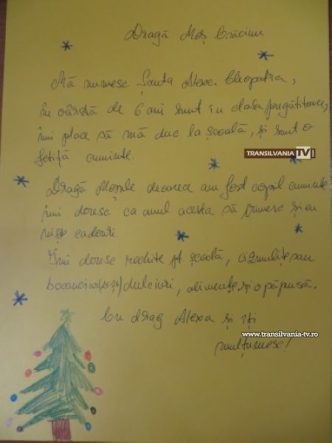 Dragă Moș Crăciun
Mă numesc Șanta Alexa Cleopatra,
în vârstă de 6 ani sunt în clasa pregătitoare,
îmi place să mă duc la școală, și sunt o
fetiță cuminte.
TRANSILVANIA TV
Dragă Moșule deoarece am fost copil cuminte
îmi doresc ca anul acesta să primesc și eu
niște cadouri
Îmi doresc rechite pt școală, o
dulciuri, alimente, și o păpușă.
Cu drag Alexa și îți
www.transilvania-tv.ro
mulțumesc!